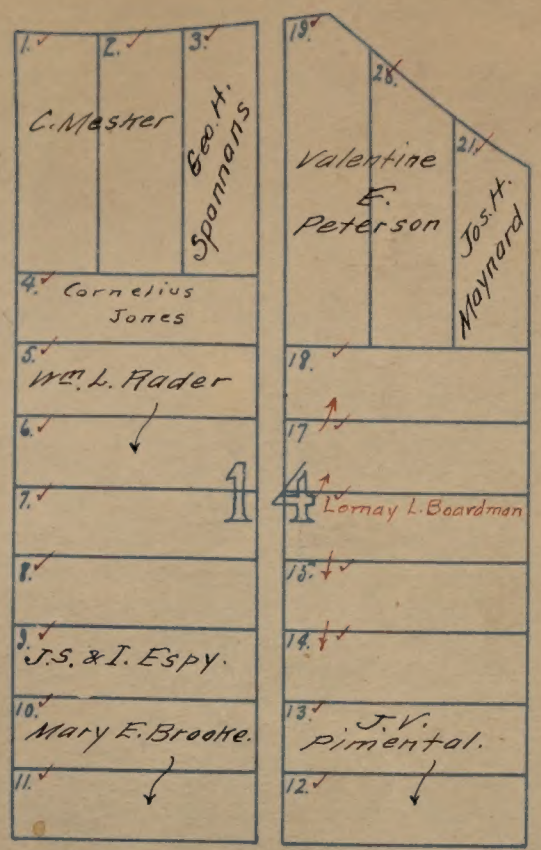 1.
2.
3.
C. Mesker
Geo. H.
Spannans
4.
Cornelius
Jones
5.
Wm. L. Rader
6.
7.
8.
9.
J.S. & I. Espy.
10.
Mary E. Brooke.
11.
14
19.
20.
21.
Valentine
E.
Peterson
Jos. H.
Maynard
18.
17
Lornay L. Boardman
15.
14.
13.
J.V.
Pimental.
12.